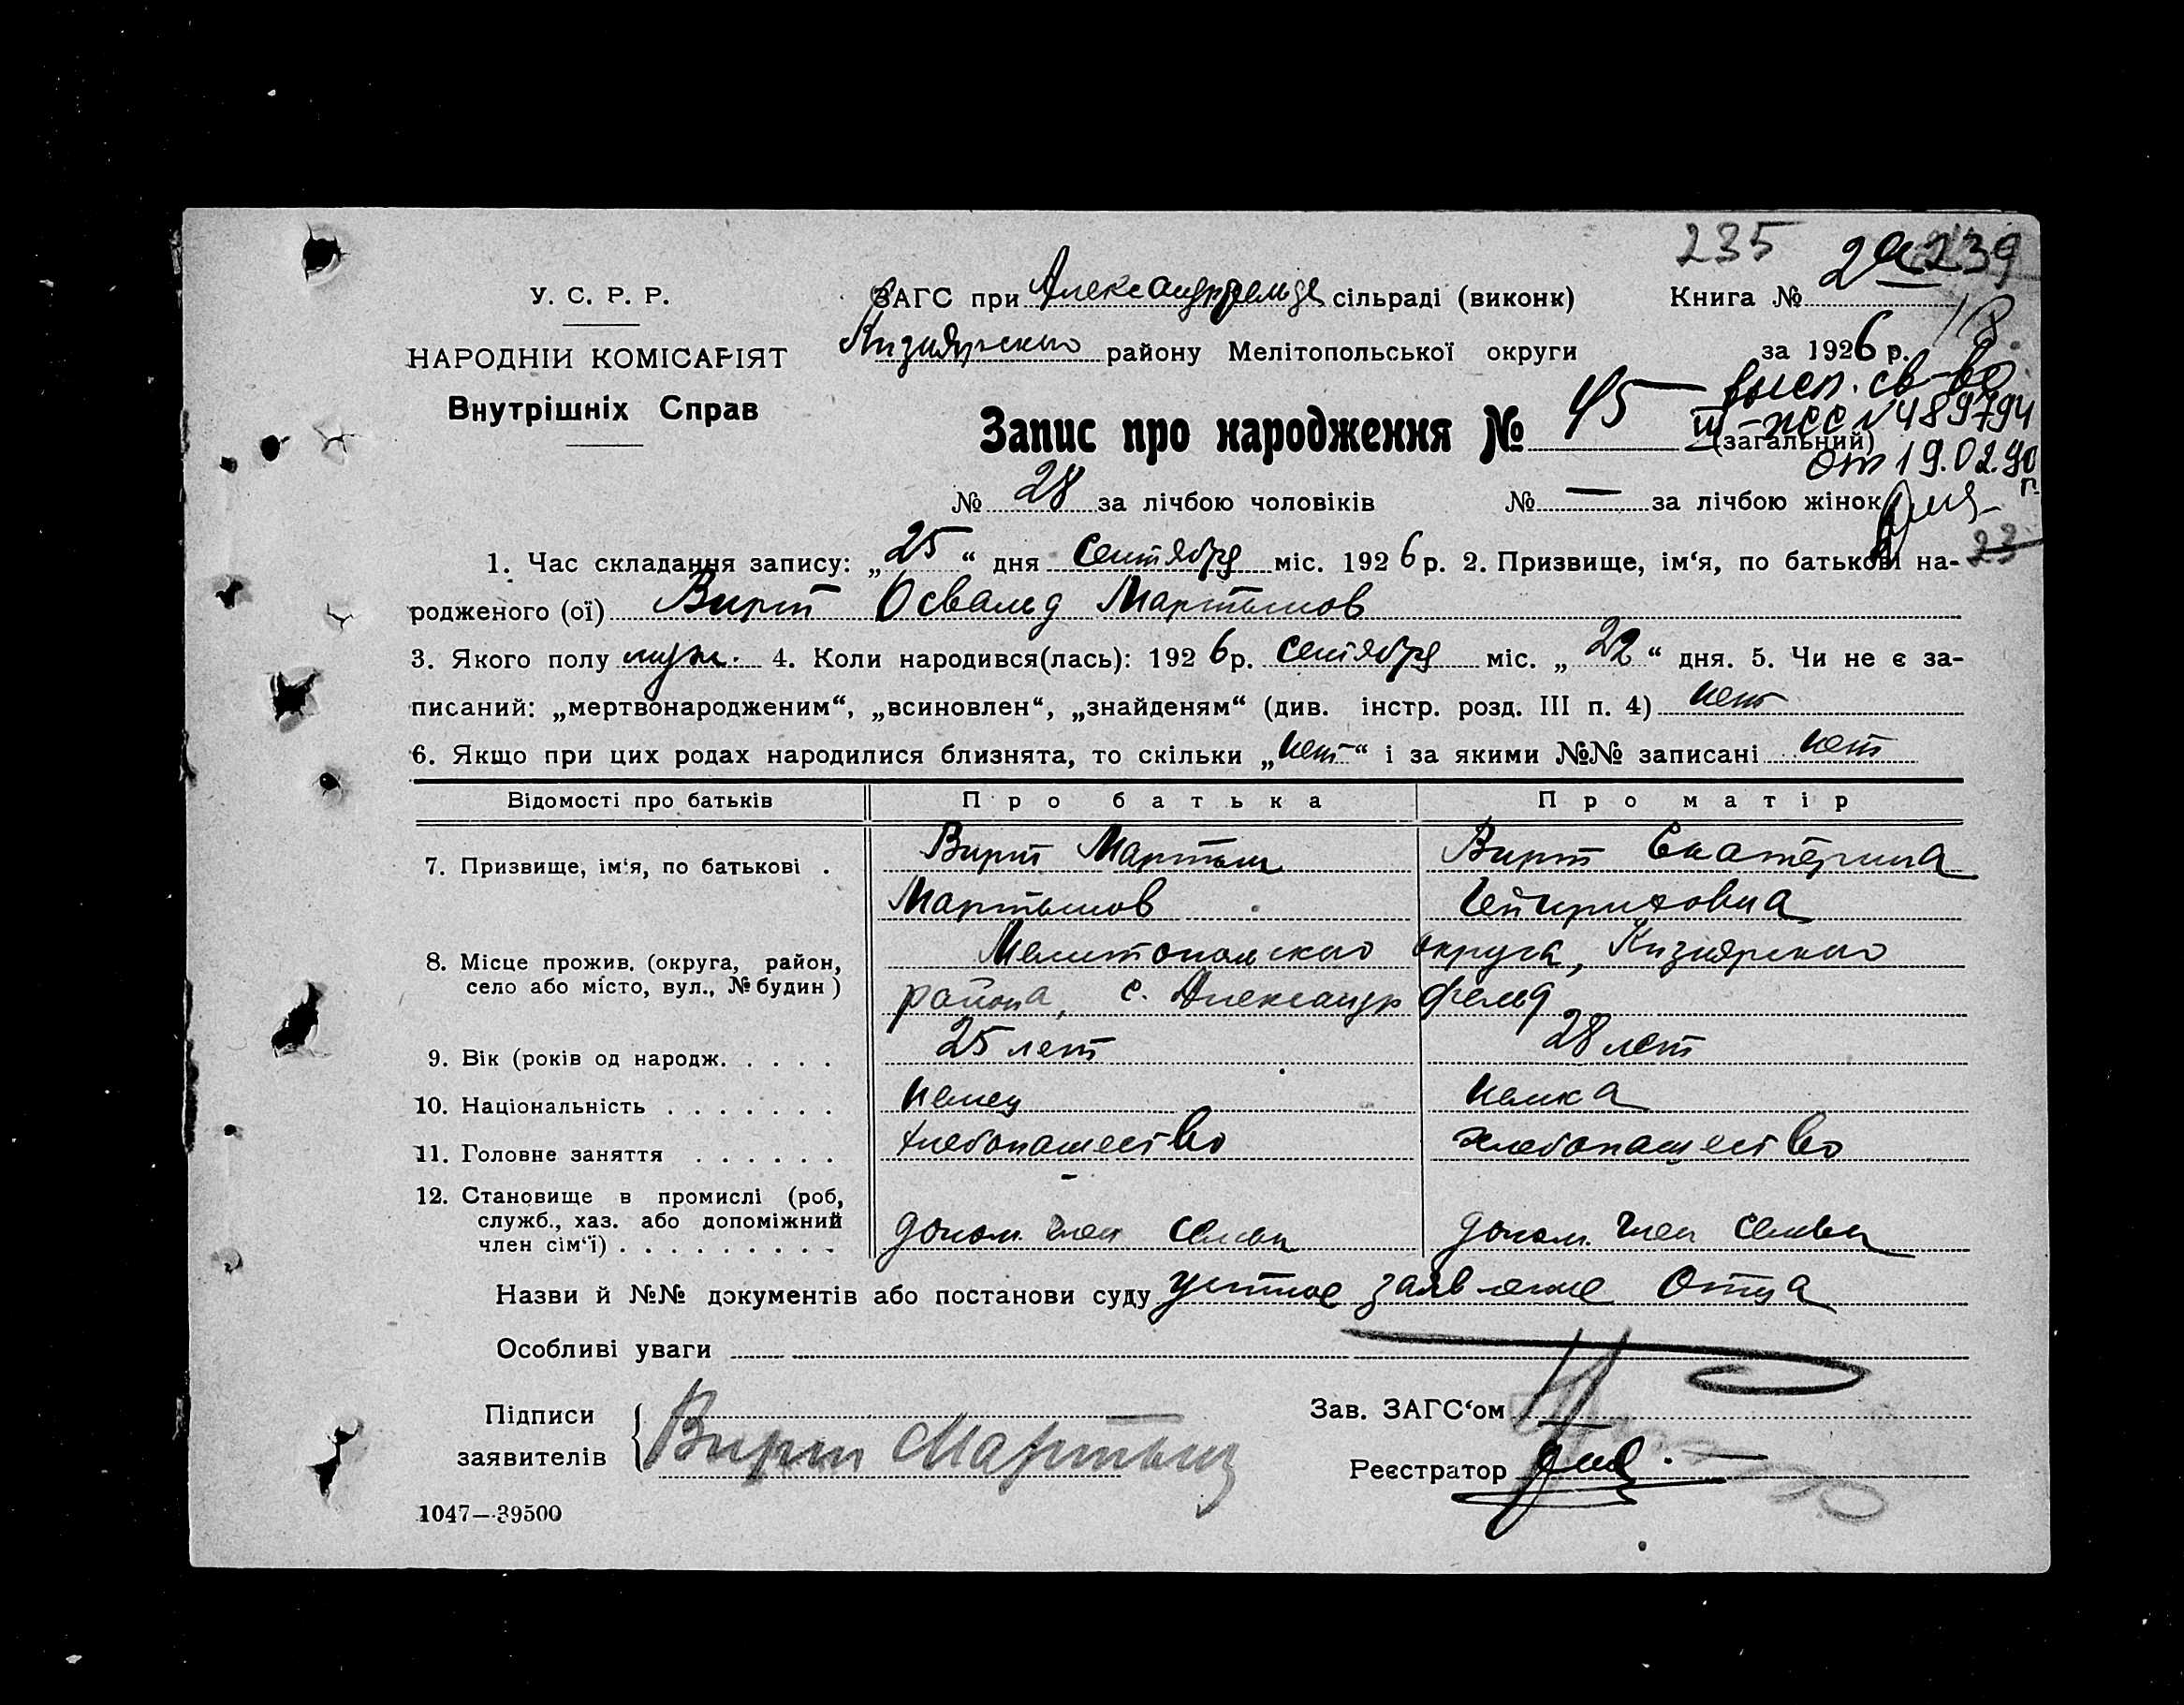 235 2а 239
У. С. Р. Р. ЗАГС при Александрфельде сільраді (виконк) Книга №
Кизиярского району Мелітопольської округи за 1926 р. 18
НАРОДНІЙ КОМІСАРІЯТ
Внутрішніх Справ
высл. св-во
Запис про народження № 45 (загальний)
III-ЖС № 489794
от 19.02.90 г.
№ 28 за лічбою чоловіків № — за лічбою жінок
23
1. Час складання запису: „25“ дня Сентября міс. 1926 р. 2. Призвище, ім‘я, по батькові на-
родженого (ої) Вирт Освальд Мартынов
3. Якого полу муж. 4. Коли народився(лась): 1926 р. Сентября міс. „22“ дня. 5. Чи не є за-
писаний: „мертвонародженим“, „всиновлен“, „знайденям“ (див. інстр. розд. III п. 4) нет
6. Якщо при цих родах народилися близнята, то скільки „нет“ і за якими №№ записані нет
Відомості про батьків Про батька Про матір
7. Призвище, ім‘я, по батькові . Вирт Мартын Вирт Екатерина
Мартынов Гейнриховна
8. Місце прожив. (округа, район, село або місто, вул., № будин) Мелитопольского округа, Кизиярского
района, с. Александрфельд
9. Вік (років од народж. . . . . 25 лет 28 лет
10. Національність . . . . . . . немец немка
11. Головне заняття . . . . . . хлебопашество хлебопашество
12. Становище в промислі (роб, служб., хаз. або допоміжний член сім‘ї) . . . . . . . . . допом. член семьи допом. член семьи
Назви й №№ документів або постанови суду устное заявление Отца
Особливі уваги
Підписи заявителів Вирт Мартын
Зав. ЗАГС‘ом
Реєстратор
1047—39500